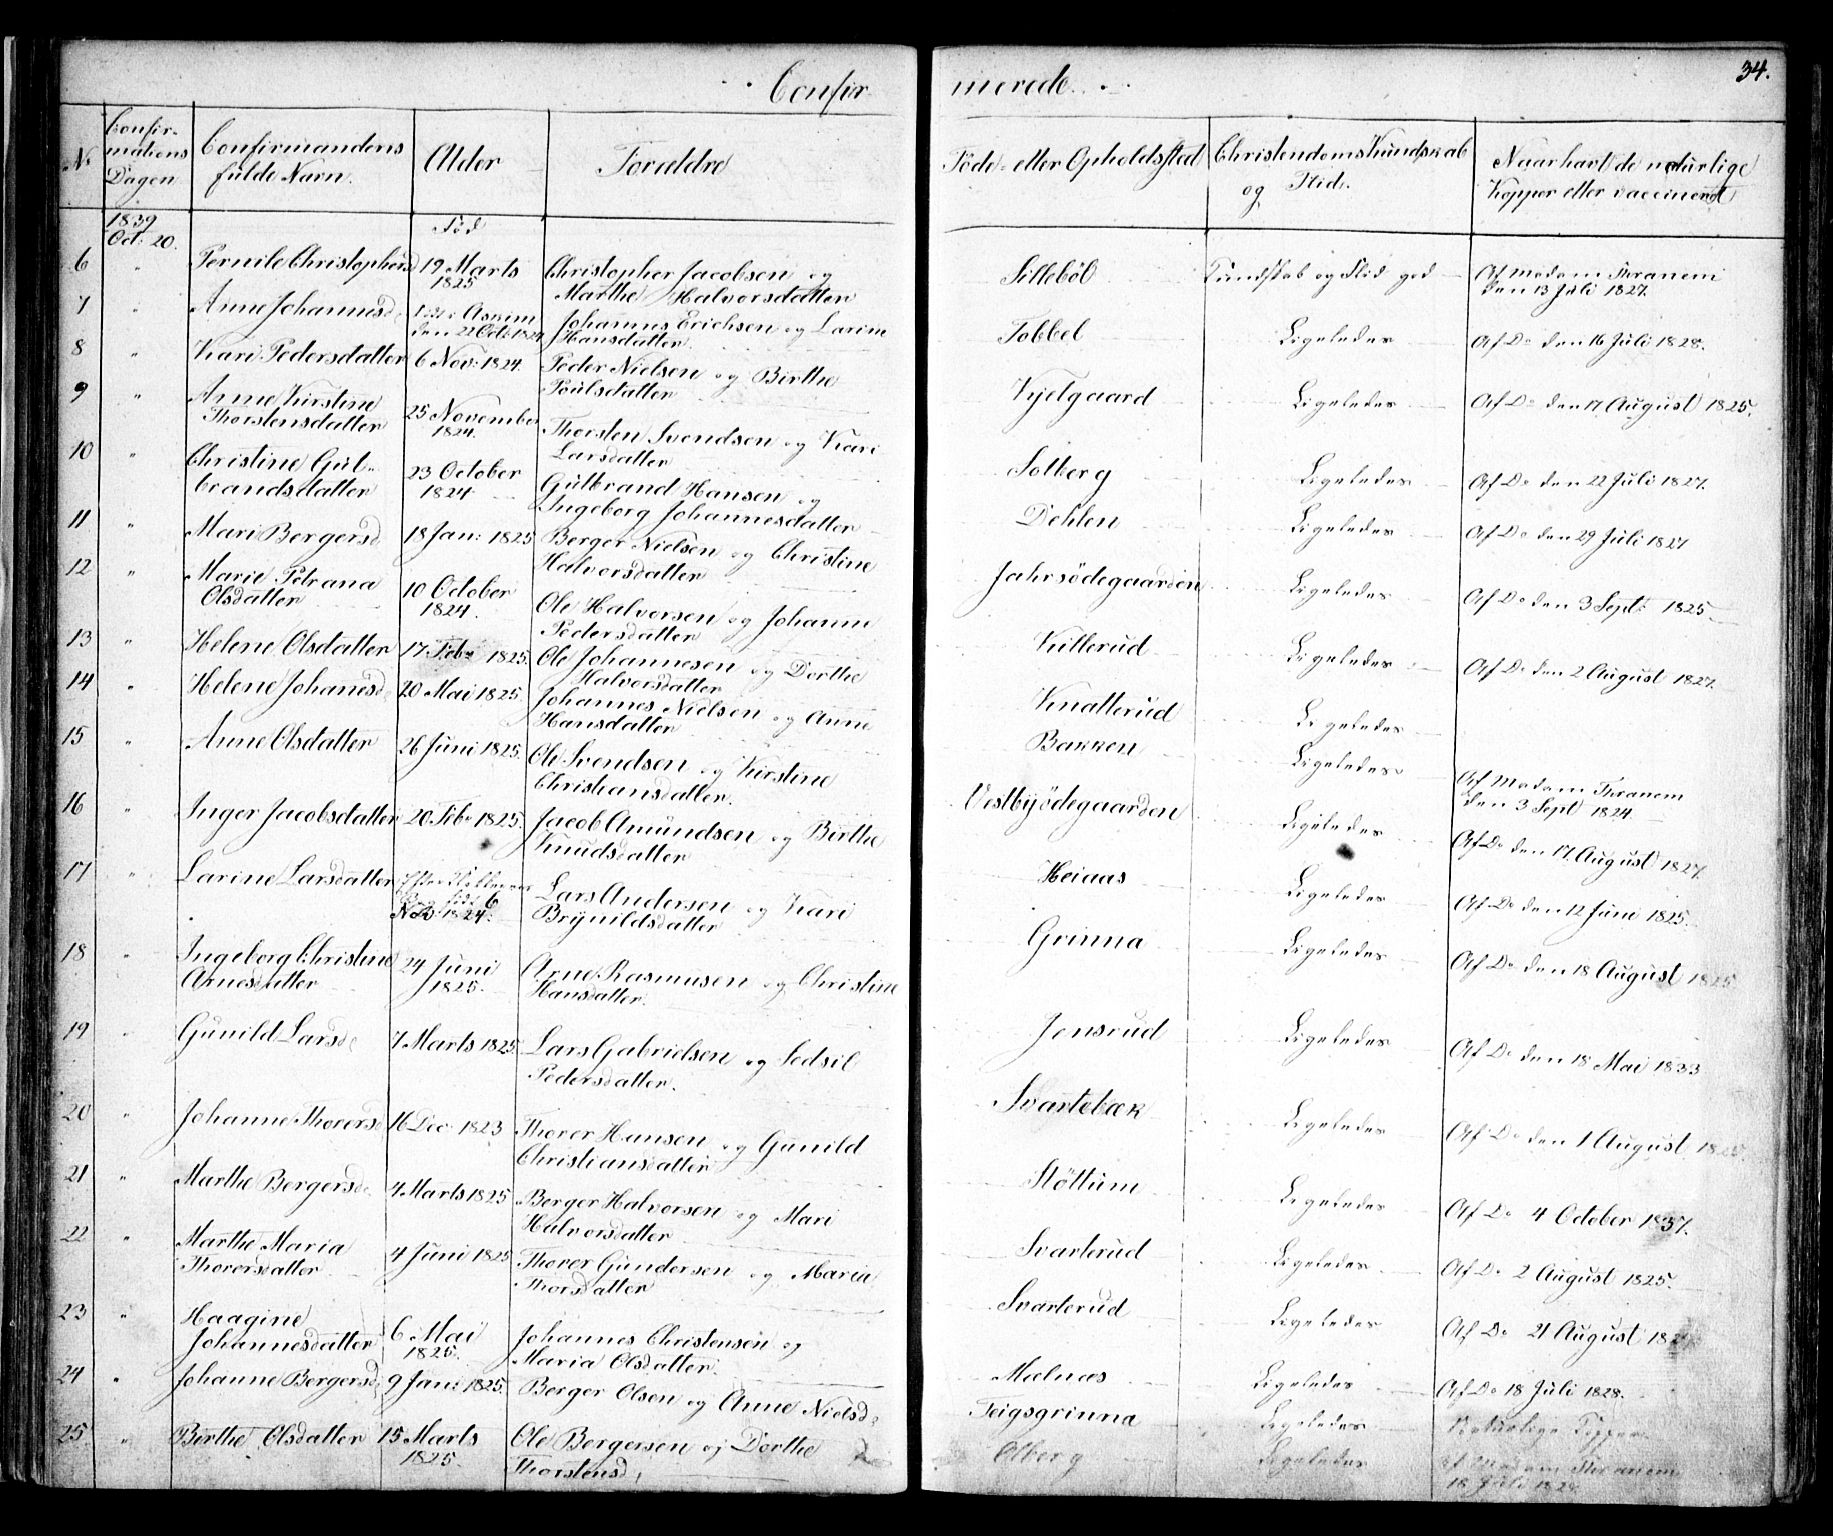 Confirmerede
34.
No
Confirmations Dagen
Confirmandens fulde Navn.
Alder
Forældre
Føde- eller Opholdssted
Christendoms Kundskab og Flid.
Naar havt de naturlige Kopper eller vaccineret
1839
Oct: 20.
Fød
6 " Pernile Christophersd 19 Marts 1825 Christopher Jacobsen og Marthe Halvorsdatter Sillebøl Kundskab og Flid god Af Madam Thranem den 13 Juli 1827.
7 " Anne Johannesd den 22 Oct: 1824 Johannes Erichsen og Larine Hansdatter Tobbel Ligeledes Af Do den 16 Juli 1828.
8 " Kari Pedersdatter 6 Nov: 1824. Peder Nielsen og Birthe Poulsdatter Kjelgaard Ligeledes Af Do den 17 August 1825.
9 " Anne Kirstine Thorstensdatter 25 November 1824. Thorsten Svendsen og Kari Larsdatter Solberg Ligeledes Af Do den 22 Juli 1827.
10 " Christine Gulbrandsdatter 23 October 1824 Gulbrand Hansen og Ingeborg Johannesdatter Dehlen Ligeledes Af Do den 29 Juli 1827
11 " Mari Bergersd 18 Jan: 1825 Berger Nielsen og Christine Halvorsdatter Jahrsødegaarden Ligeledes Af Do den 3 Sept: 1825
12 " Marie Petrana Olsdatter 10 October 1824. Ole Halvorsen og Johanne Pedersdatter Killerud Ligeledes Af Do den 2 August 1827.
13 " Helene Olsdatter 17 Feb: 1825. Ole Johannesen og Dorthe Halvorsdatter Knatterud Ligeledes
14 " Helene Johanesd 20 Mai 1825. Johannes Nielsen og Anne Hansdatter Bakken Ligeledes Af Madam Thranem den 3 Sept 1824.
15 " Anne Olsdatter 26 Juni 1825. Ole Svendsen og Kirstine Christiansdatter. Vestbyødegaarden Ligeledes Af Do den 17 August 1827.
16 " Inger Jacobsdatter 20 Feb: 1825. Jacob Amundsen og Birthe Knudsdatter Heiaas Ligeledes Af Do den 12 Juni 1825.
17 " Larine Larsdatter 6 Nov: 1824. Lars Andersen og Kari Brynildsdatter Grinna Ligeledes Af Do den 18 August 1825
18 " Ingeborg Christine Arnesdatter 24 Juni 1825. Arne Rasmusen og Christine Hansdatter. Jensrud Ligeledes Af Do den 18 Mai 1833
19 " Gunild Larsd 7 Marts 1825. Lars Gabrielsen og Sedsil Pedersdatter. Svartebæk Ligeledes Af Do den 1 August
20 " Johanne Thorersd 16 Dec: 1823 Thorer Hansen og Gunild Christiansdatter Støttum Ligeledes Af Do 4 October 1837.
21 " Marthe Bergersd 4 Marts 1825 Berger Halvorsen og Mari Halvorsdatter Svarterud Ligeledes Af Do 2 August 1825.
22 " Marthe Maria Thorersdatter 4 Juni 1825 Thorer Gundersen og Maria Thorsdatter Svarterud Ligeledes Af Do 21 August
23 " Haagine Johannesdatter 6 Mai 1825. Johannes Christensen og Maria Olsdatter. Mælnæs Ligeledes Af Do 18 Juli 1828.
24 " Johanne Bergersd 9 Jan: 1825. Berger Olsen og Anne Nielsd: Teigsgrinna Ligeledes Naturlige Kopper
25 " Birthe Olsdatter 15 Marts 1825. Ole Bergersen og Dorthe Thorstensd, Olberg Ligeledes af Madam Thranem 18 Juli 1828.